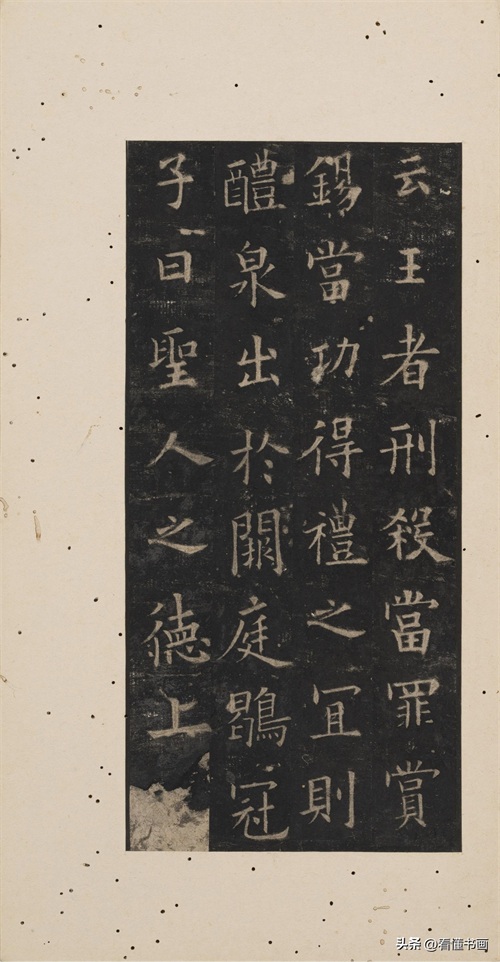 云王者刑殺當罪賞
錫當功得禮之宜則
醴泉出於闕庭鶡冠
子曰聖人之德上
头条 @看懂书画